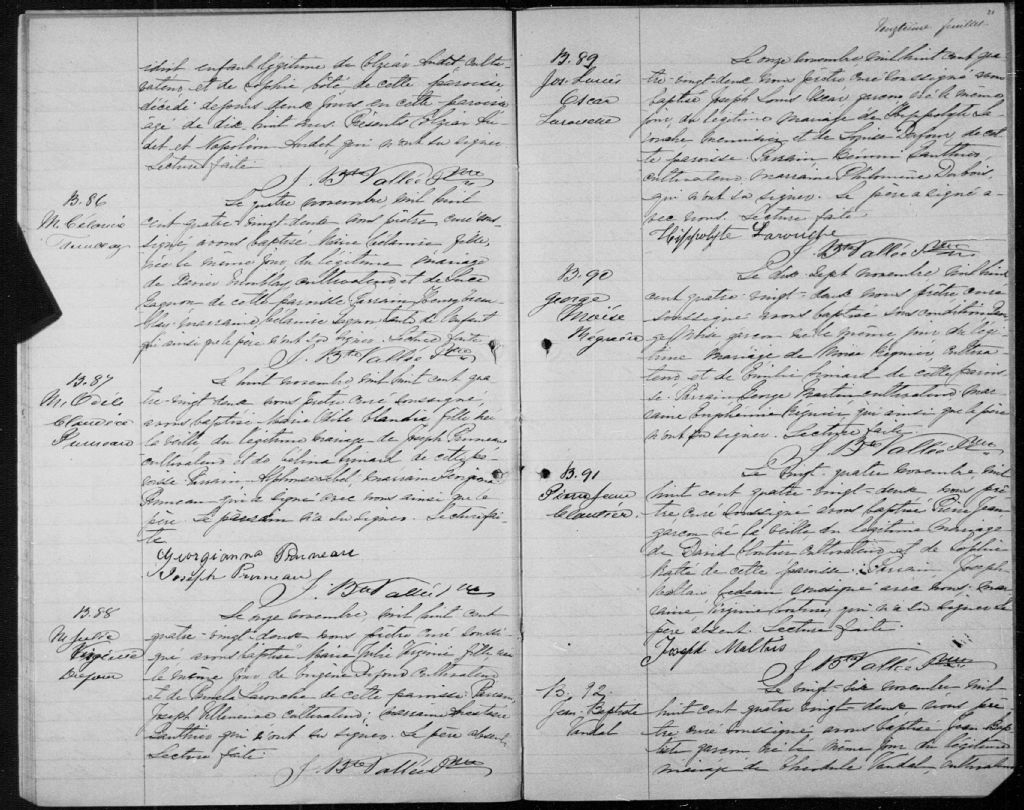 idiot enfant légitime de Elzéar Audet culti-
vateur et de Sophie Coté de cette paroisse,
décédé depuis deux jours en cette paroisse
âgé de dix huit mois. Présents Elzéar Au-
det et Napoléon Audet qui n'ont su signer.
Lecture faite
J. Bte Vallée Ptre
B.86
M. Célanie
Tremblay
Le quatre novembre mil huit
cent quatre-vingt-deux nous prêtre, curé sous-
signé, avons baptisé Marie Célanie fille
née le même jour du légitime mariage
de Xavier Tremblay cultivateur et de Luce
Gagnon de cette paroisse Parrain Trem-
blay marraine Célanie Gagnon tante de l'enfant
qui ainsi que le père n'ont su signer. Lecture faite
J. Bte Vallée Ptre
B.87
M. Adèle
Claudia
Pruneau
Le huit novembre mil huit cent qua-
tre-vingt-deux nous prêtre curé soussigné,
avons baptisé Marie Adèle Claudia fille née
la veille du légitime mariage de Joseph Pruneau
cultivateur et de Célina Simard de cette pa-
roisse Parrain Alphonse marraine Georgianna
Pruneau qui a signé avec nous ainsi que le
père. Le parrain n'a su signer. Lecture fai-
te
Georgianna Pruneau
Joseph Pruneau
J. Bte Vallée Ptre
B.88
M. Julie
Virginie
Dufour
Le onze novembre mil huit cent
quatre-vingt-deux nous prêtre curé soussi-
gné avons baptisé Marie Julie Virginie fille née
le même jour de Eugène Dufour cultivateur
et de Larouche de cette paroisse. Parrain
Joseph Villeneuve cultivateur, marraine
Gauthier qui n'ont su signer. Le père absent
Lecture faite
J. Bte Vallée Ptre
Vingtième feuillet
B.89
Jos. Louis
Oscar
Larouche
Le onze novembre mil huit cent qua-
tre-vingt-deux nous prêtre curé soussigné avons
baptisé Joseph Louis Oscar garçon né le même
jour du légitime mariage de Hippolyte La-
rouche menuisier et de Louise Dufour de cet-
te paroisse. Parrain Gauthier,
cultivateur marraine Philomène Dubois,
qui n'ont su signer. Le père a signé a-
vec nous. Lecture faite
Hippolyte Larouche
J. Bte Vallée Ptre
B.90
George
Moïse
Régnier
Le dix sept novembre mil huit
cent quatre-vingt-deux nous prêtre curé
soussigné avons baptisé sous condition Geor-
ge Moïse garçon né le même jour du légi-
time mariage de Moïse Régnier, cultiva-
teur et de Emilie Simard de cette parois-
se. Parrain George Martin cultivateur mar-
raine Euphémie Régnier, qui ainsi que le père
n'ont su signer. Lecture faite
J. Bte Vallée Ptre
B.91
Pierre Jean
Cloutier
Le vingt quatre novembre mil
huit cent quatre-vingt-deux nous prê-
tre, curé soussigné avons baptisé Pierre Jean
garçon né la veille du légitime mariage
de David Cloutier cultivateur et de Sophie
de cette paroisse. Parrain Joseph
Maltais soussigné avec nous. mar-
raine Virginie qui n'a su signer. Le
père absent. Lecture faite
Joseph Maltais
J. Bte Vallée Ptre
B.92
Jean-Baptiste
Vandal
Le vingt-six novembre mil
huit cent quatre-vingt-deux nous prê-
tre curé soussigné, avons baptisé Jean Bap-
tiste garçon né le même jour du légitime
mariage de Théodule Vandal, cultivateur